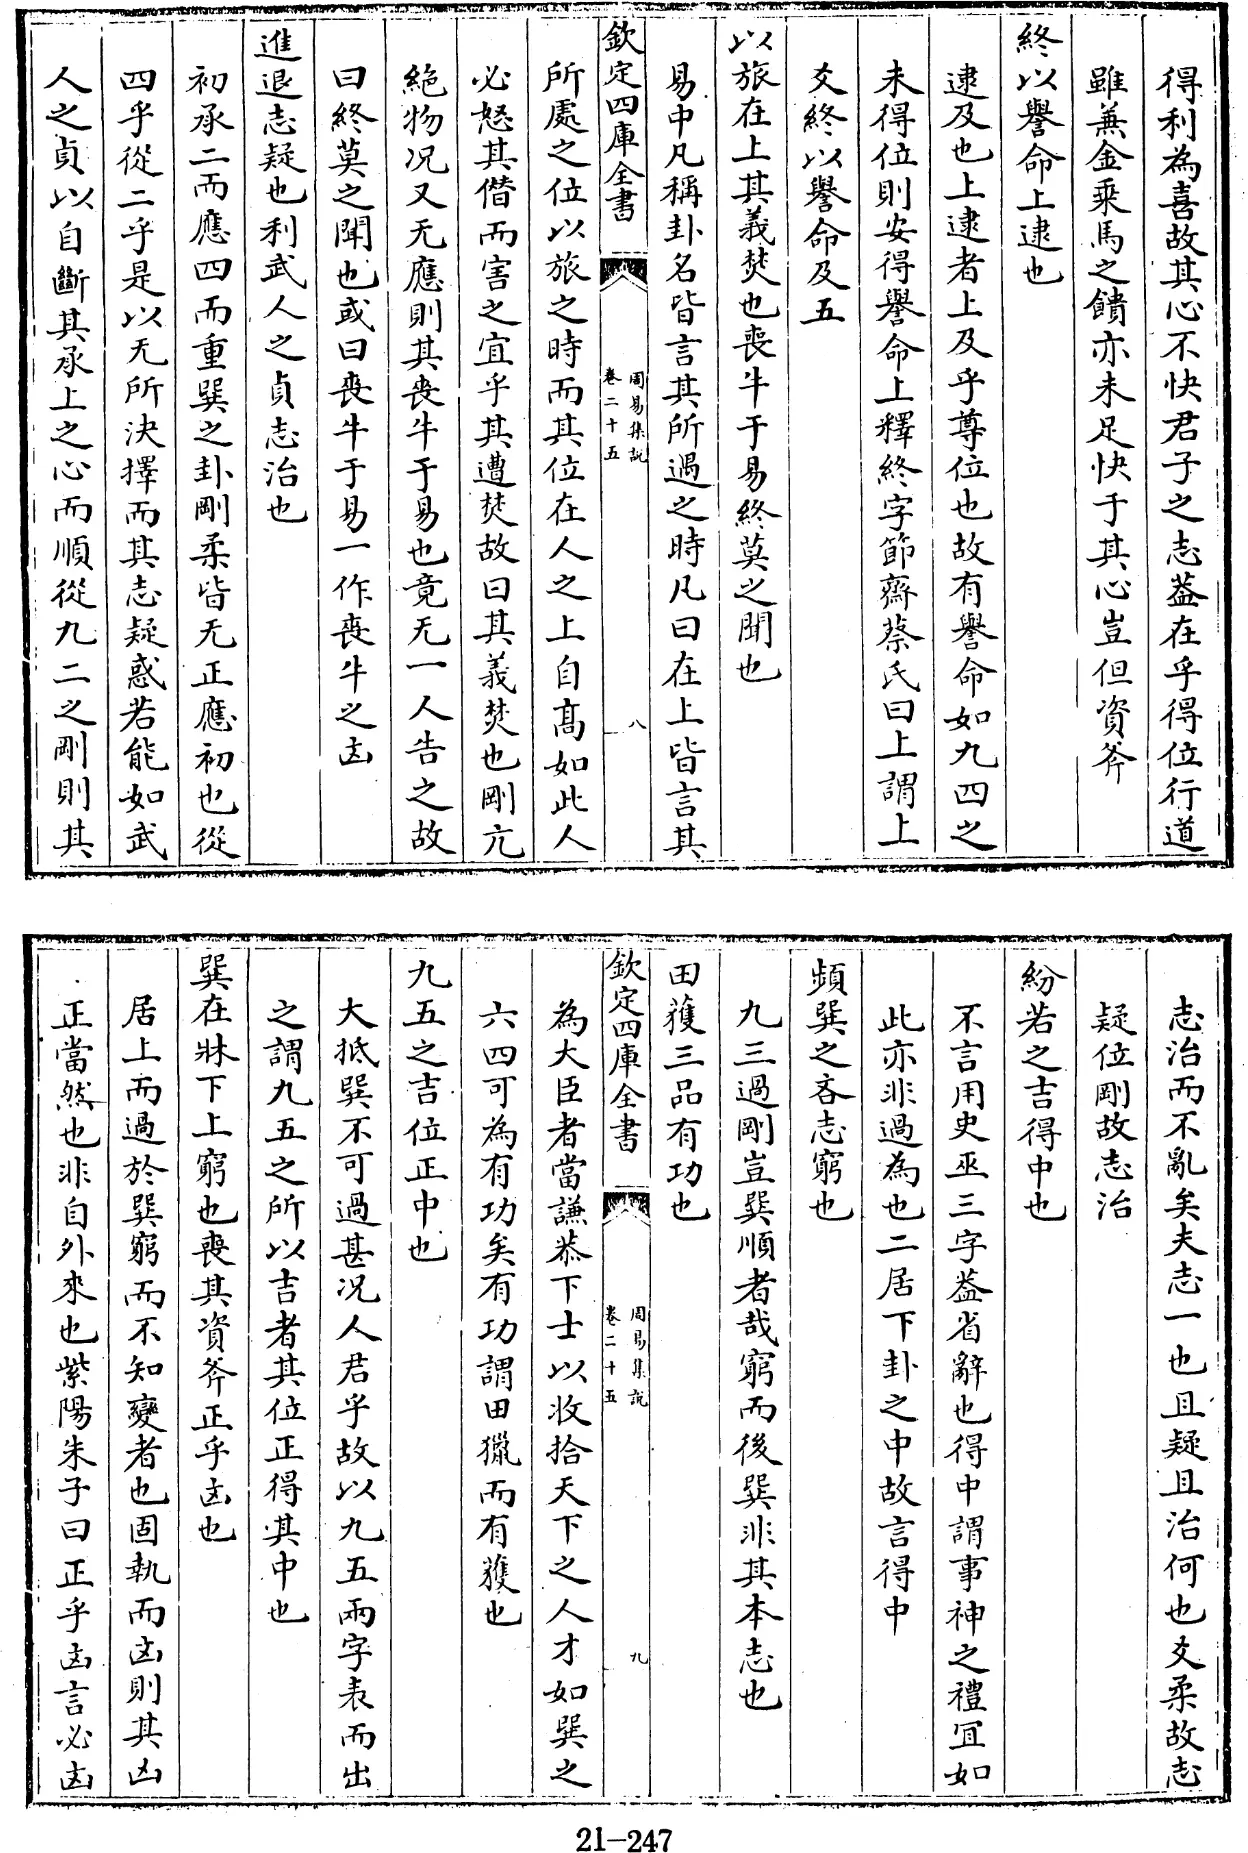 得利為喜故其心不快君子之志葢在乎得位行道
雖兼金乗馬之饋亦未足快于其心豈但資斧
終以譽命上逮也
逮及也上逮者上及乎尊位也故有譽命如九四之
未得位則安得譽命上釋終字節齋蔡氏曰上謂上
爻終以譽命及五
以旅在上其義焚也喪牛于易終莫之聞也
易中凡稱卦名皆言其所遇之時凡曰在上皆言其
欽定四庫全書
周易集說
卷二十五
八
所處之位以旅之時而其位在人之上自髙如此人
必怒其僭而害之宜乎其遭焚故曰其義焚也剛亢
絶物况又无應則其喪牛于易也竟无一人告之故
曰終莫之聞也或曰喪牛于易一作喪牛之凶
進退志疑也利武人之貞志治也
初承二而應四而重巽之卦剛柔皆无正應初也從
四乎從二乎是以无所決擇而其志疑惑若能如武
人之貞以自斷其承上之心而順從九二之剛則其
志治而不亂矣夫志一也且疑且治何也爻柔故志
疑位剛故志治
紛若之吉得中也
不言用史巫三字葢省辭也得中謂事神之禮宜如
此亦非過為也二居下卦之中故言得中
頻巽之吝志窮也
九三過剛豈巽順者哉窮而後巽非其本志也
田獲三品有功也
欽定四庫全書
周易集說
卷二十五
九
為大臣者當謙恭下士以收拾天下之人才如巽之
六四可為有功矣有功謂田獵而有獲也
九五之吉位正中也
大抵巽不可過甚况人君乎故以九五兩字表而出
之謂九五之所以吉者其位正得其中也
巽在牀下上窮也喪其資斧正乎凶也
居上而過於巽窮而不知變者也固執而凶則其凶
正當然也非自外來也紫陽朱子曰正乎凶言必凶
21-247